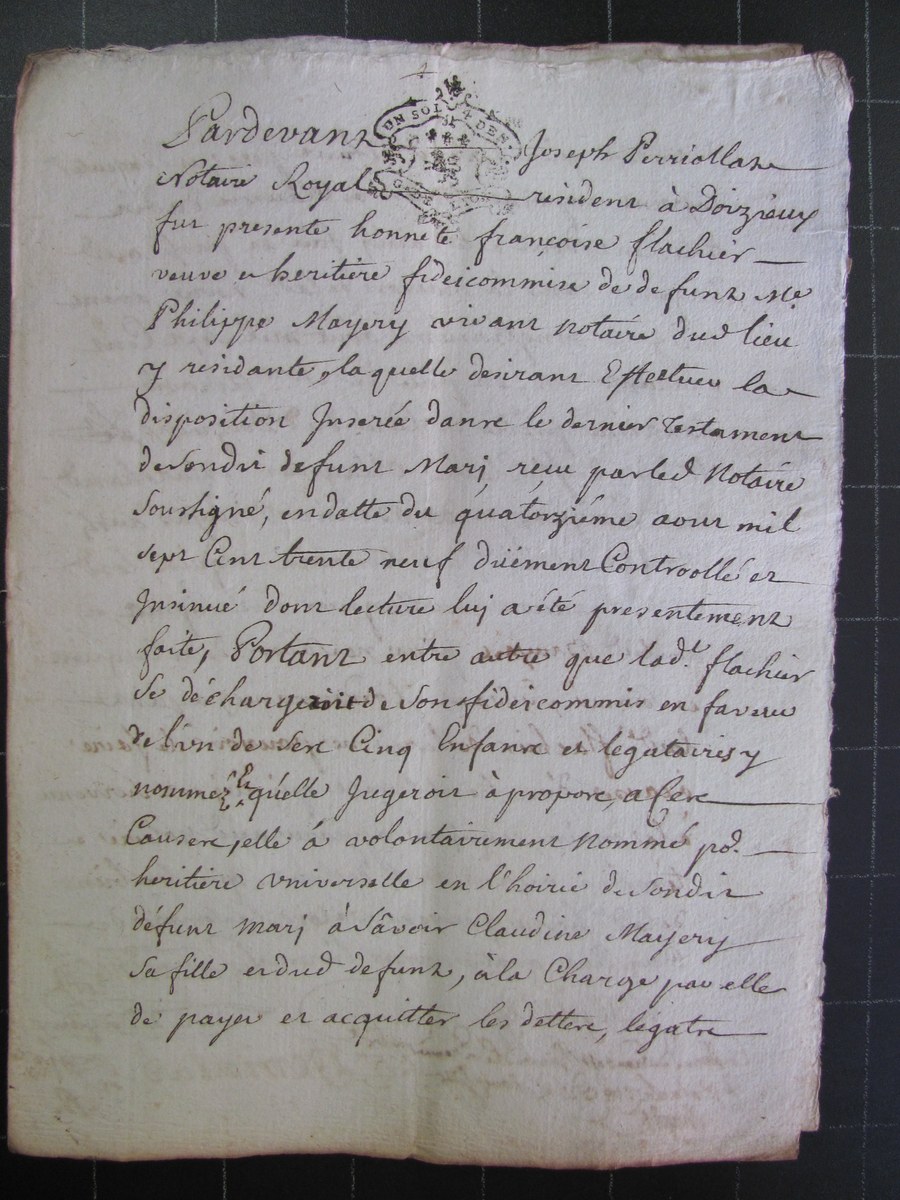 Pardevant UN SOL 4 DEN. Joseph Perriollat
Notaire Royal résident à Doizieux
fut presente honnete françoise flachier
veuve et heritière fideicommise de defunt Me
Philippe Mayery vivant notaire dud lieu
y residante, laquelle desirant Effectuer la
disposition Inserée dans le dernier testament
de sondit defunt Marj reçu par led Notaire
soussigné, en datte du quatorziéme aout mil
sept Cent trente neuf düément Controollé et
Insinué dont lecture luj a été presentement
faite, Portant entre autre que lad.e flachier
se déchargeroit de son fideicommis en faveur
de l'vn de ses Cinq Enfans et legataires y
nommez qu'elle Jugeroit à propos, a Ces
Causes, elle á volontairement nommé po.r
heritière vniverselle en l'hoirie de sondit
défunt marj á sâvoir Claudine Mayery
sa fille et dud defunt, à la Charge par elle
de payer et acquitter les dettes, légats